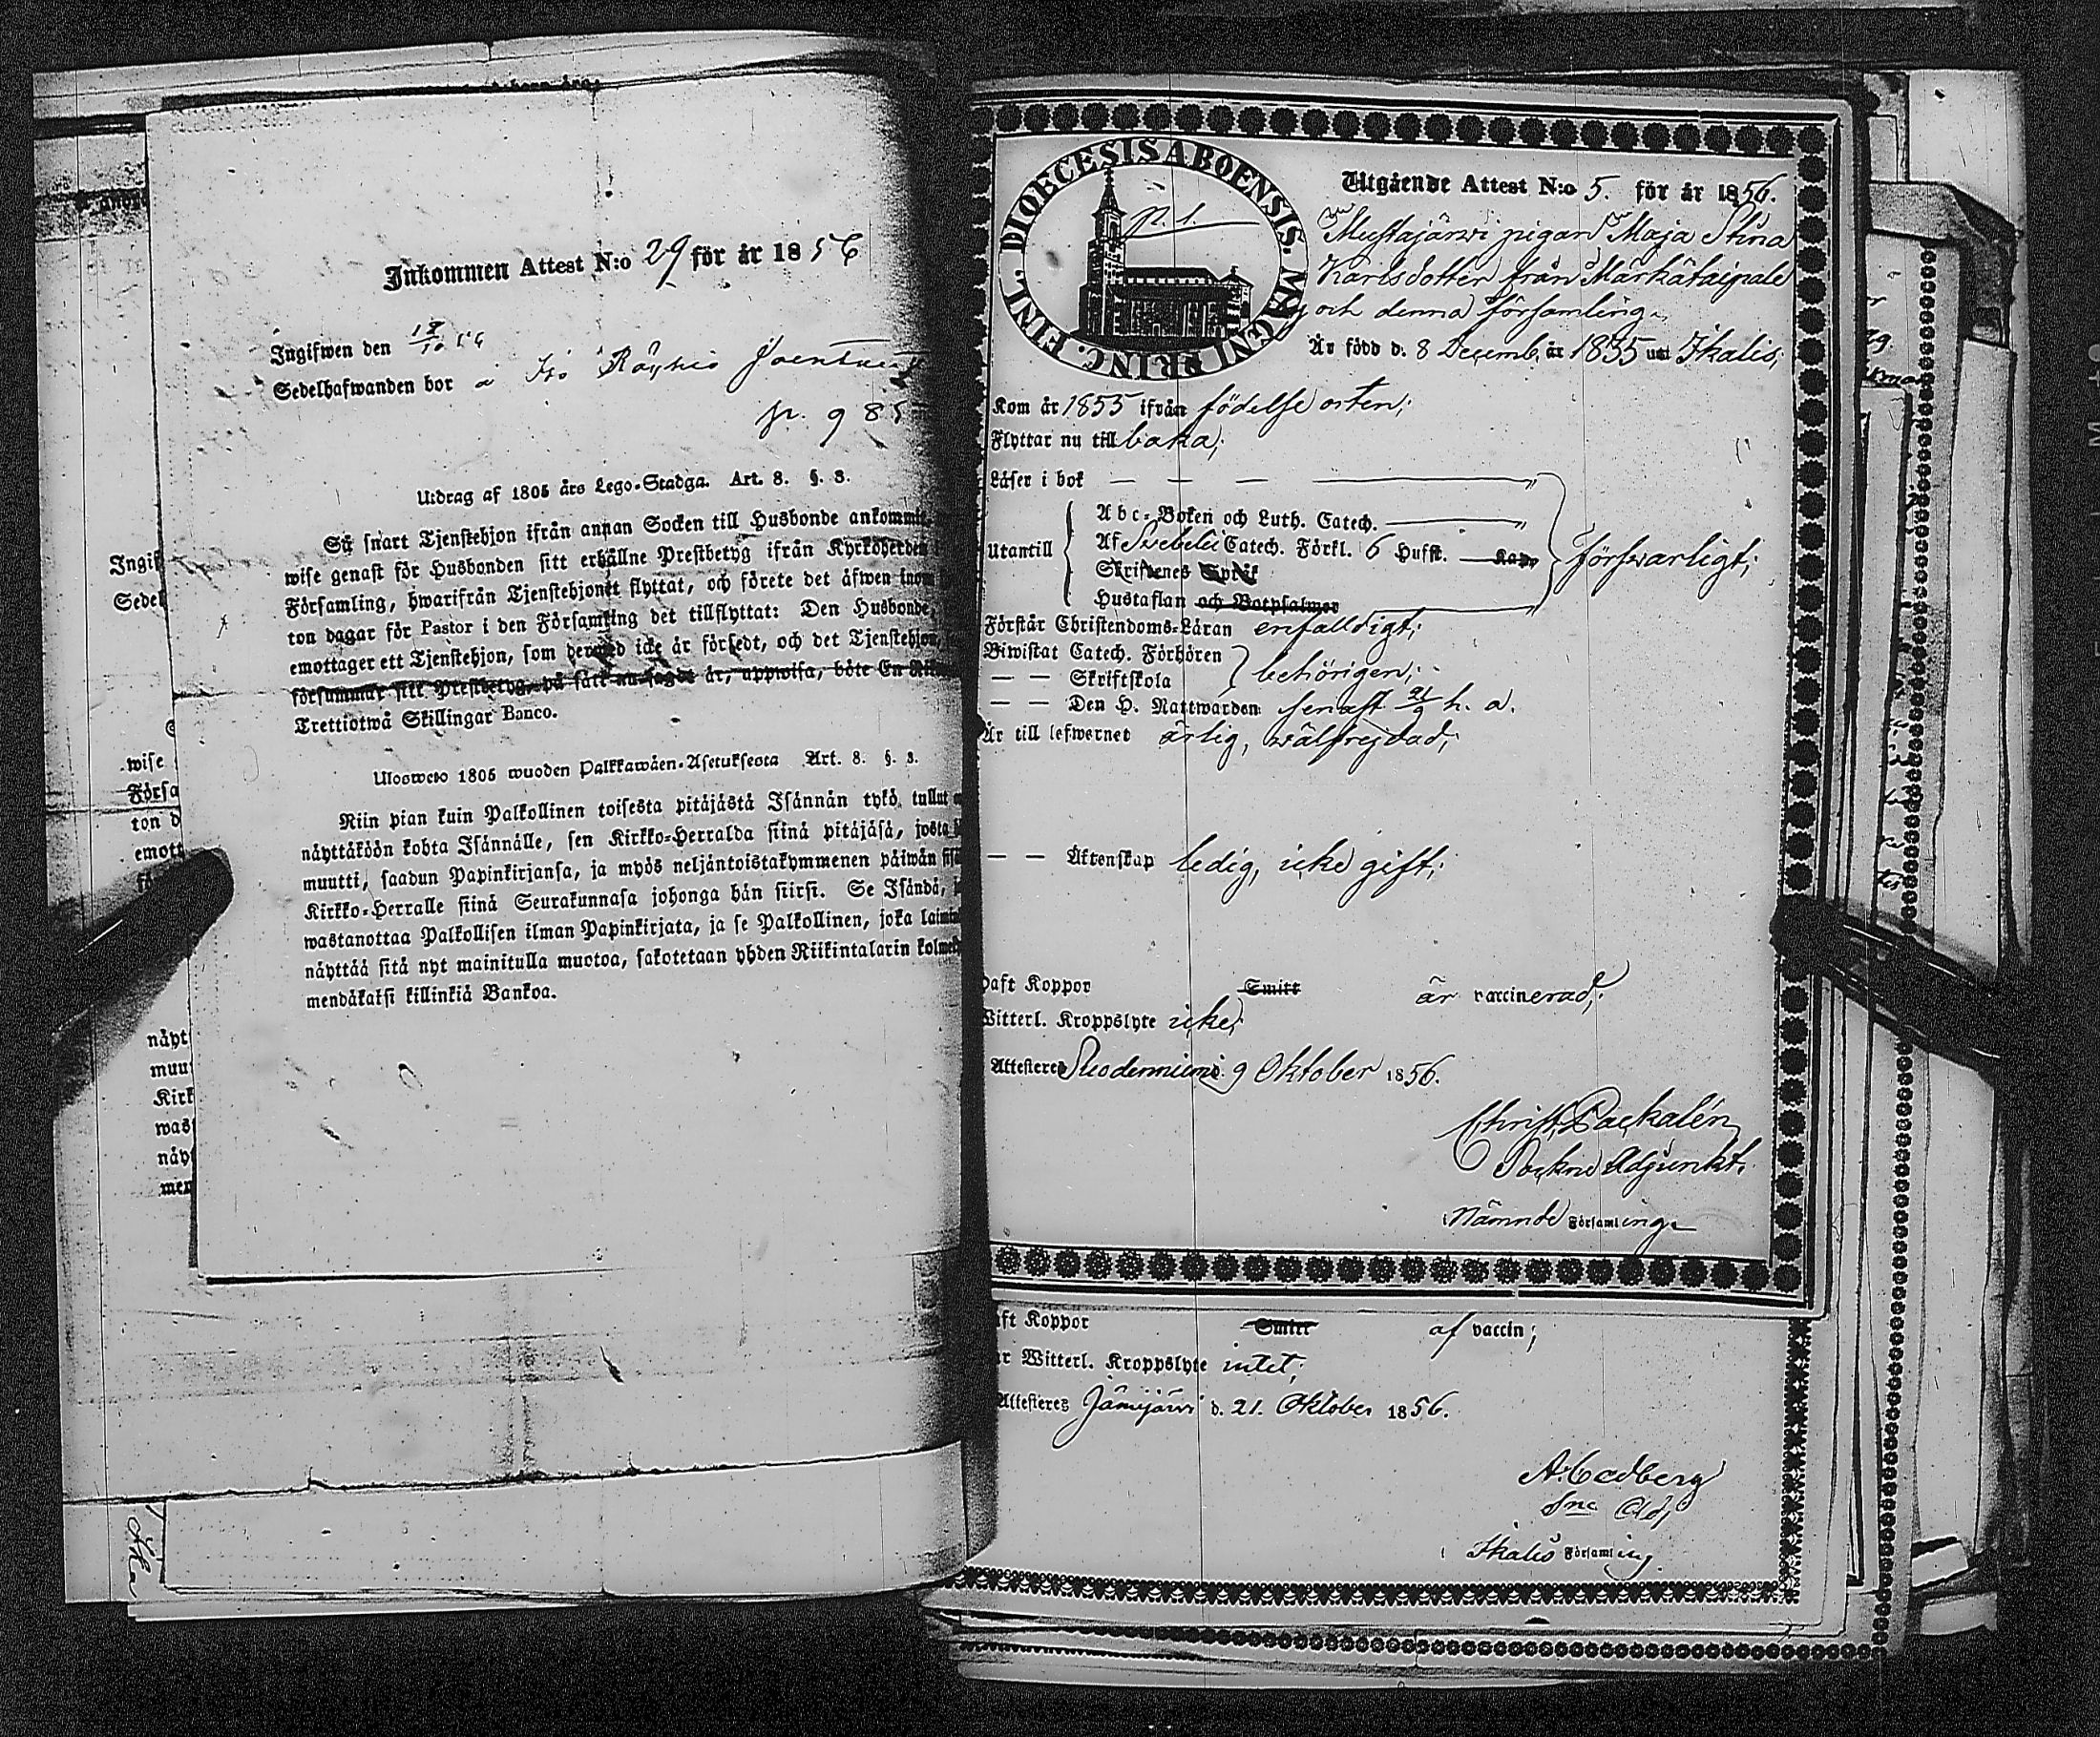 Inkommen Attest N:o 29 för år 1856
Ingifwen den 18/10 56
Sedelhafwanden bor å Iso Röyhiö
p. 985
Utdrag af 1805 års Lego-Stadga. Art. 8. §. 3.
Så snart Tjenstehjon ifrån annan Socken till Husbonde ankommit,
wise genast för Husbonden sitt erhållne Prestbetyg ifrån Kyrkoherden
Församling, hwarifrån Tjenstehjonet flyttat, och förete det äfwen inom
ton dagar för Pastor i den Församling det tillflyttat: Den Husbonde,
emottager ett Tjenstehjon, som dermed icke är försedt, och det Tjenstehjon,
försummar sitt Prestbetyg, på sätt nu sagdt är, uppwisa, böte En
Trettiotwå Skillingar Banco.
Ulosweto 1805 wuoden Palkkawäen-Asetuksesta Art. 8. §. 3.
Niin pian kuin Palkollinen toisesta pitäjästä Isännän tykö tullut
näyttäköön kohta Isännälle, sen Kirkko-Herralda siinä pitäjäsä, josta
muutti, saadun Papinkirjansa, ja myös neljäntoistakymmenen päiwän
Kirkko-Herralle siinä Seurakunnasa johonga hän siirsi. Se Isändä,
wastanottaa Palkollisen ilman Papinkirjata, ja se Palkollinen, joka
näyttää sitä nyt mainitulla muotoa, sakotetaan yhden Riikintalarin
mendäkaksi killinkiä Bankoa.
Ingif
Sedel
wise
Förså
ton d
emott
näyt
muut
Kirk
wast
näyt
men
DIOECESIS ABOENSIS. MAGNI PRINC. FINL.
p. 1.
Utgående Attest N:o 5. för år 1856.
Mustajärwi pigan Maja Stina
Karlsdotter från Märkätaipale
och denna församling.
Är född d. 8 Decemb. år 1835 uti Ikalis;
Kom år 1855 ifrån födelse orten;
Flyttar nu till baka;
Läser i bok — — — "
Utantill
Abc-Boken och Luth. Catech. "
Af Svebelii Catech. Förkl. 6 Hufst. Kap.
Skriftenes Språk
Hustaflan och Botpsalmer "
förswarligt;
Förstår Christendoms-Läran enfalldigt;
Biwistat Catech. Förhören
— — Skriftskola
behörigen;
— — Den H. Nattwarden senast 21/9 h. a.
Är till lefwernet ärlig, wälfrejdad;
— — Äktenskap ledig, icke gift;
Haft Koppor Smitt är vaccinerad;
Witterl. Kroppslyte icke;
Attesteres Suodenniemi 9 Oktober 1856.
Christ. Packalén
Sockne Adjunkt.
i Nämnde Församling
Haft Koppor Smitt af vaccin;
Har Witterl. Kroppslyte intet;
Attesteres Jämijärvi d. 21. Oktober 1856.
A. Cedberg
Sne Adj.
i Ikalis Församling.